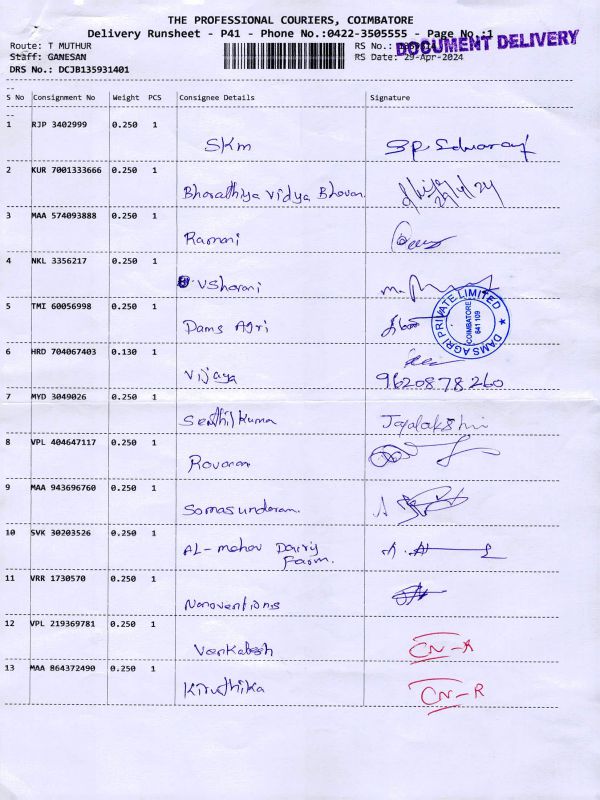 THE PROFESSIONAL COURIERS, COIMBATORE
Delivery Runsheet - P41 - Phone No.:0422-3505555 - Page No.:1
DOCUMENT DELIVERY
Route: T MUTHUR
RS No.:
Staff: GANESAN
RS Date: 29-Apr-2024
DRS No.: DCJB135931401
S No Consignment No Weight PCS Consignee Details Signature
1 RJP 3402999 0.250 1
SKm
2 KUR 7001333666 0.250 1
Bharathiya Vidya Bhavan
29/4/24
3 MAA 574093888 0.250 1
Ramani
4 NKL 3356217 0.250 1
5 TMI 60056998 0.250 1
Dams Agri
DAMS AGRI PRIVATE LIMITED
COIMBATORE
641 109
6 HRD 704067403 0.130 1
Vijaya 9620878260
7 MYD 3049026 0.250 1
Senthil Kumar Jayalakshmi
8 VPL 404647117 0.250 1
9 MAA 943696760 0.250 1
Somasundaram.
10 SVK 30203526 0.250 1
AL-mahav Dairy
Farm.
11 VRR 1730570 0.250 1
Nanoventions
12 VPL 219369781 0.250 1
Venkatesh CN-R
13 MAA 864372490 0.250 1
Kiruthika CN-R